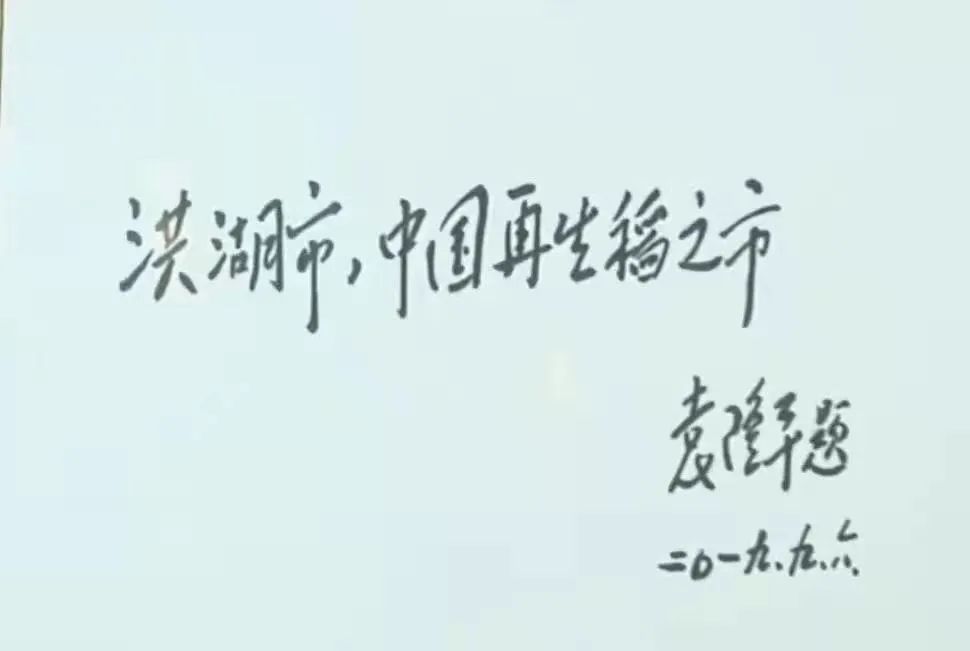 洪湖市,中国再生稻之市
袁隆平题
二0一九.九.六